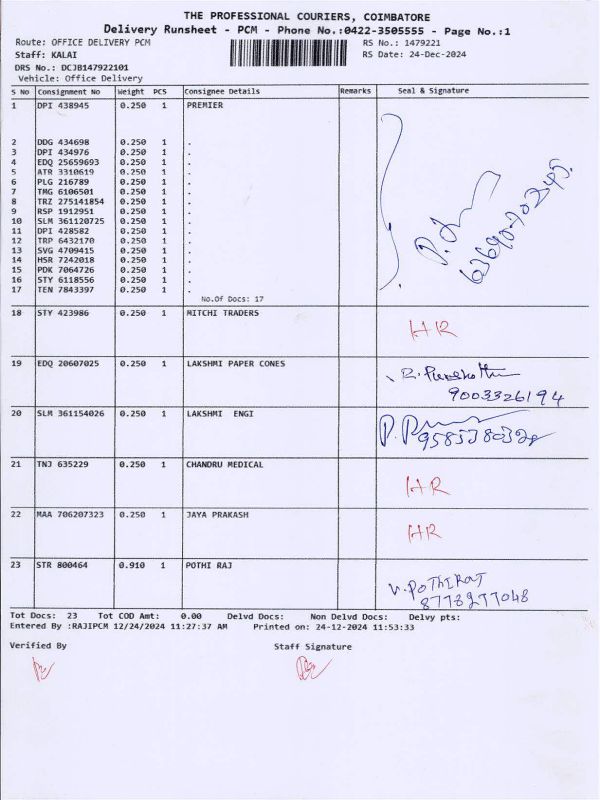 THE PROFESSIONAL COURIERS, COIMBATORE
Delivery Runsheet - PCM - Phone No.:0422-3505555 - Page No.:1
Route: OFFICE DELIVERY PCM RS No.: 1479221
Staff: KALAI RS Date: 24-Dec-2024
DRS No.: DCJB147922101
Vehicle: Office Delivery
S No Consignment No Weight PCS Consignee Details Remarks Seal & Signature
1 DPI 438945 0.250 1 PREMIER
2 DDG 434698 0.250 1 .
3 DPI 434976 0.250 1 .
4 EDQ 25659693 0.250 1 .
5 ATR 3310619 0.250 1 .
6 PLG 216789 0.250 1 .
7 TMG 6106501 0.250 1 .
8 TRZ 275141854 0.250 1 .
9 RSP 1912951 0.250 1 .
10 SLM 361120725 0.250 1 .
11 DPI 428582 0.250 1 .
12 TRP 6432170 0.250 1 .
13 SVG 4709415 0.250 1 .
14 HSR 7242018 0.250 1 .
15 PDK 7064726 0.250 1 .
16 STY 6118556 0.250 1 .
17 TEN 7843397 0.250 1 .
No.Of Docs: 17
18 STY 423986 0.250 1 MITCHI TRADERS HR
19 EDQ 20607025 0.250 1 LAKSHMI PAPER CONES
9003326194
20 SLM 361154026 0.250 1 LAKSHMI ENGI
21 TNJ 635229 0.250 1 CHANDRU MEDICAL HR
22 MAA 706207323 0.250 1 JAYA PRAKASH HR
23 STR 800464 0.910 1 POTHI RAJ V. POTHIRAJ
8778277048
Tot Docs: 23 Tot COD Amt: 0.00 Delvd Docs: Non Delvd Docs: Delvy pts:
Entered By :RAJIPCM 12/24/2024 11:27:37 AM Printed on: 24-12-2024 11:53:33
Verified By Staff Signature